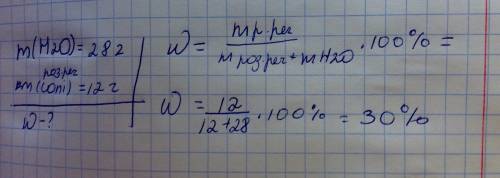 m(H2O)=28г
роз.реч
m(солі)=12г
W-?
W = m р.реч / m роз.реч + m H2O · 100% =
W = 12 / 12+28 · 100% = 30%